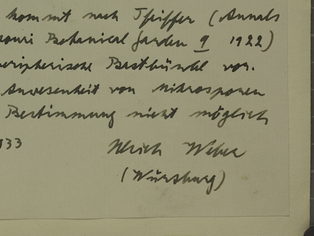 kommt nach Pfeiffer (Annals
souri Botanical Garden 9 1922)
peripherische Bastbündel vor.
Anwesenheit von Mikrosporen
Bestimmung nicht möglich
933
Ulrich Weber
(Würzburg)